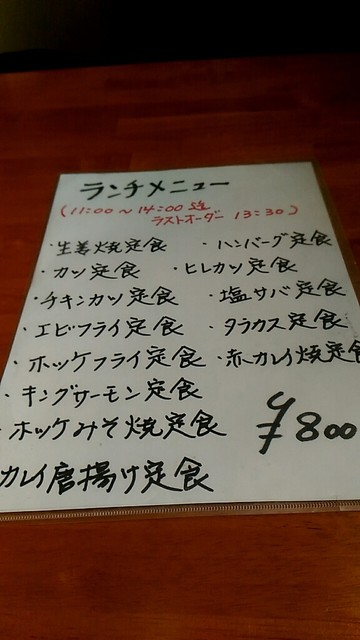 ランチメニュー
(11:00～14:00迄
ラストオーダー 13:30)
・生姜焼定食 ・ハンバーグ定食
・カツ定食 ・ヒレカツ定食
・チキンカツ定食 ・塩サバ定食
・エビフライ定食 ・タラカス定食
・ホッケフライ定食 ・赤カレイ焼定食
・キングサーモン定食
・ホッケみそ焼定食 ¥800
カレイ唐揚げ定食